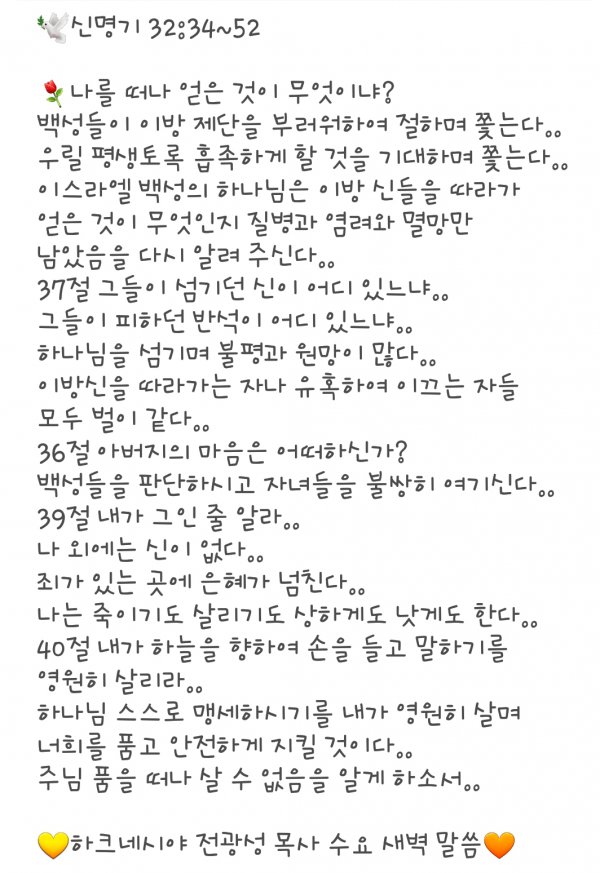 🕊️신명기 32:34~52
🌹나를 떠나 얻은 것이 무엇이냐?
백성들이 이방 제단을 부러워하여 절하며 쫓는다..
우릴 평생토록 흡족하게 할 것을 기대하며 쫓는다..
이스라엘 백성의 하나님은 이방 신들을 따라가
얻은 것이 무엇인지 질병과 염려와 멸망만
남았음을 다시 알려 주신다..
37절 그들이 섬기던 신이 어디 있느냐..
그들이 피하던 반석이 어디 있느냐..
하나님을 섬기며 불평과 원망이 많다..
이방신을 따라가는 자나 유혹하여 이끄는 자들
모두 벌이 같다..
36절 아버지의 마음은 어떠하신가?
백성들을 판단하시고 자녀들을 불쌍히 여기신다..
39절 내가 그인 줄 알라..
나 외에는 신이 없다..
죄가 있는 곳에 은혜가 넘친다..
나는 죽이기도 살리기도 상하게도 낫게도 한다..
40절 내가 하늘을 향하여 손을 들고 말하기를
영원히 살리라..
하나님 스스로 맹세하시기를 내가 영원히 살며
너희를 품고 안전하게 지킬 것이다..
주님 품을 떠나 살 수 없음을 알게 하소서..
💛하크네시야 전광성 목사 수요 새벽 말씀🧡